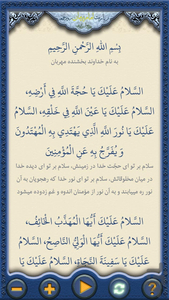 بِسْمِ اللَّهِ الرَّحْمنِ الرَّحیمِ
به نام خداوند بخشنده مهربان
السَّلامُ عَلَیْکَ یَا حُجَّةَ اللَّهِ فِی أَرْضِهِ،
السَّلامُ عَلَیْکَ یَا عَیْنَ اللَّهِ فِی خَلْقِهِ، السَّلامُ
عَلَیْکَ یَا نُورَ اللَّهِ الَّذِی یَهْتَدِی بِهِ الْمُهْتَدُونَ
وَ یُفَرَّجُ بِهِ عَنِ الْمُؤْمِنِینَ
سلام بر تو ای حجت خدا در زمینش، سلام بر تو ای دیده خدا
در میان مخلوقاتش، سلام بر تو ای نور خدا که رهجویان به آن
نور ره مییابند و به آن نور از مؤمنان اندوه و غم زدوده میشود
السَّلامُ عَلَیْکَ أَیُّهَا الْمُهَذَّبُ الْخَائِفُ،
السَّلامُ عَلَیْکَ أَیُّهَا الْوَلِیُّ النَّاصِحُ، السَّلامُ
عَلَیْکَ یَا سَفِینَةَ النَّجَاةِ، السَّلامُ عَلَیْکَ یَا